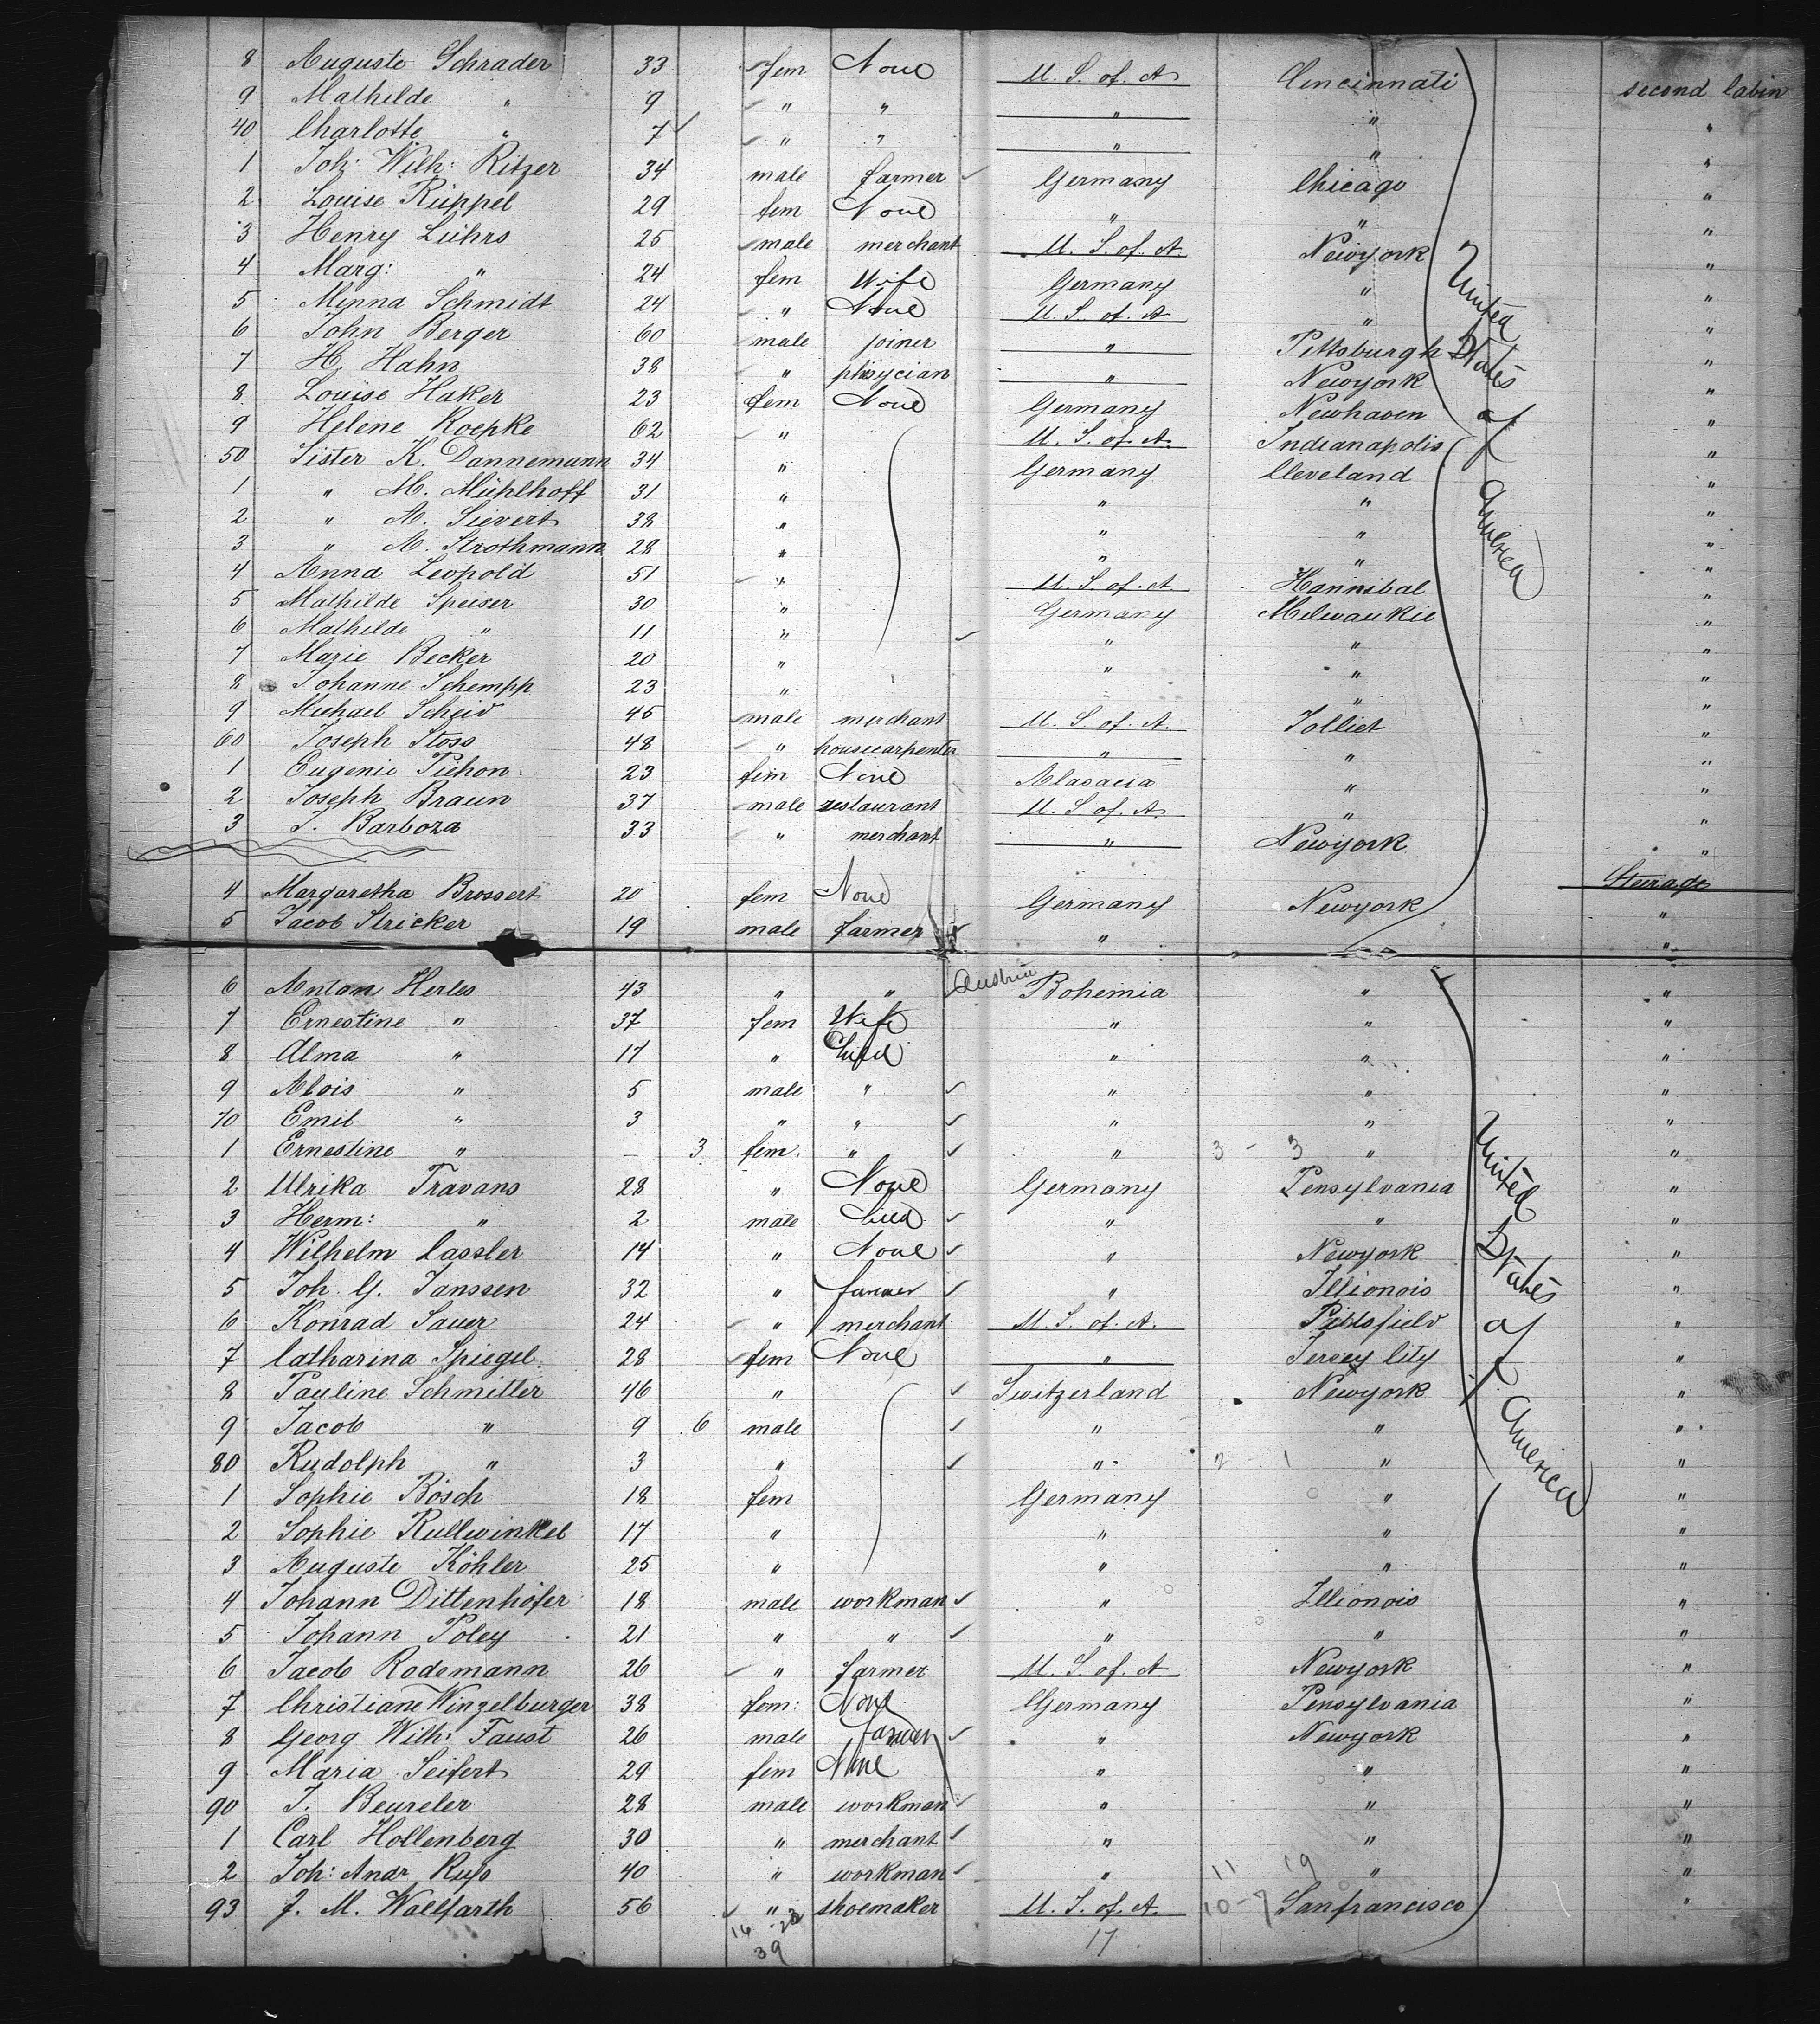 8 Auguste Schrader 33 fem None U. S. of. A Cincinnati second Cabin
9 Mathilde " 9 " " " " "
40 Charlotte " 7 " " " " "
1 Joh: Wilh: Ritzer 34 male farmer Germany Chicago "
2 Louise Rüppel 29 fem None " " "
3 Henry Lührs 25 male merchant U. S. of. A. Newyork "
4 Marg: " 24 fem Wife Germany " "
5 Minna Schmidt 24 " None U. S. of. A " "
6 John Berger 60 male joiner " Pittsburgh "
7 H. Hahn 38 " phisycian " Newyork "
8 Louise Haker 23 fem None Germany Newhaven "
9 Helene Roepke 62 " U. S. of. A. Indianapolis "
50 Sister K. Dannemann 34 " Germany Cleveland "
1 " M. Mühlhoff 31 " " " "
2 " A. Sievert 38 " " " "
3 " A. Strothmann 28 " " " "
4 Anna Leopold 51 " U. S. of. A Hannibal "
5 Mathilde Speiser 30 " Germany Milwaukie "
6 Mathilde " 11 " " " "
7 Marie Becker 20 " " " "
8 Johanne Schempp 23 " " "
9 Michael Scheid 45 male merchant U. S. of. A. Jolliet "
60 Joseph Stoss 48 " housecarpenter " " "
1 Eugenie Pichon 23 fem None Alsacia " "
2 Joseph Braun 37 male restaurant U. S. of. A. " "
3 J. Barboza 33 " merchant " Newyork "
United States of America
Steerage
4 Margaretha Brossert 20 fem None Germany Newyork "
5 Jacob Stricker 19 male farmer " "
6 Anton Herles 43 " " Austria Bohemia " "
7 Ernestine " 37 fem Wife " " "
8 Alma " 17 " Child " " "
9 Alois " 5 male " " " "
70 Emil " 3 " " " " "
1 Ernestine " – 3 fem. " " 3 - 3 " "
2 Ulrika Travans 28 " None Germany Pensylvania "
3 Herm: " 2 male Child " " "
4 Wilhelm Cassler 14 " None " Newyork "
5 Joh. G. Janssen 32 " farmer " Illionois "
6 Konrad Sauer 24 " merchant U. S. of. A. Pittsfield "
7 Catharina Spiegel 28 fem None " Jersey City "
8 Pauline Schmitter 46 " Switzerland Newyork "
9 Jacob " 9 6 male " " "
80 Rudolph " 3 " " 2 - 1 " "
1 Sophie Bösch 18 fem Germany " "
2 Sophie Rullwinkel 17 " " " "
3 Auguste Köhler 25 " " " "
4 Johann Dittenhöfer 18 male workman " Illionois "
5 Johann Poley 21 " " " " "
6 Jacob Rodemann 26 " farmer U. S. of. A Newyork "
7 Christiane Winzelburger 38 fem: None Germany Pensylvania "
8 Georg Wilh: Faust 26 male Farmer " Newyork "
9 Maria Seifert 29 fem None " " "
90 J. Beureler 28 male workman " " "
1 Carl Hollenberg 30 " merchant " " "
2 Joh: Andr Rufs 40 " workman " 11 19 " "
93 J. M. Wallfarth 56 " shoemaker U. S. of. A. 10 - 7 Sanfrancisco "
United States of America
16 - 23 17
39